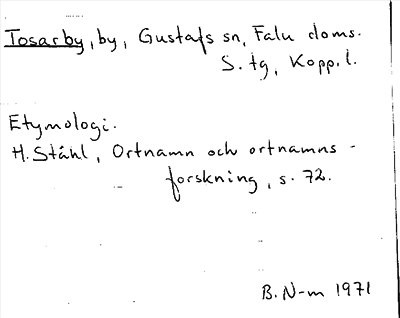 Tosarby, by, Gustafs sn, Falu doms.
S. tg, Kopp. l.
Etymologi.
H. Ståhl, Ortnamn och ortnamns-
forskning, s. 72.
B. N-m 1971